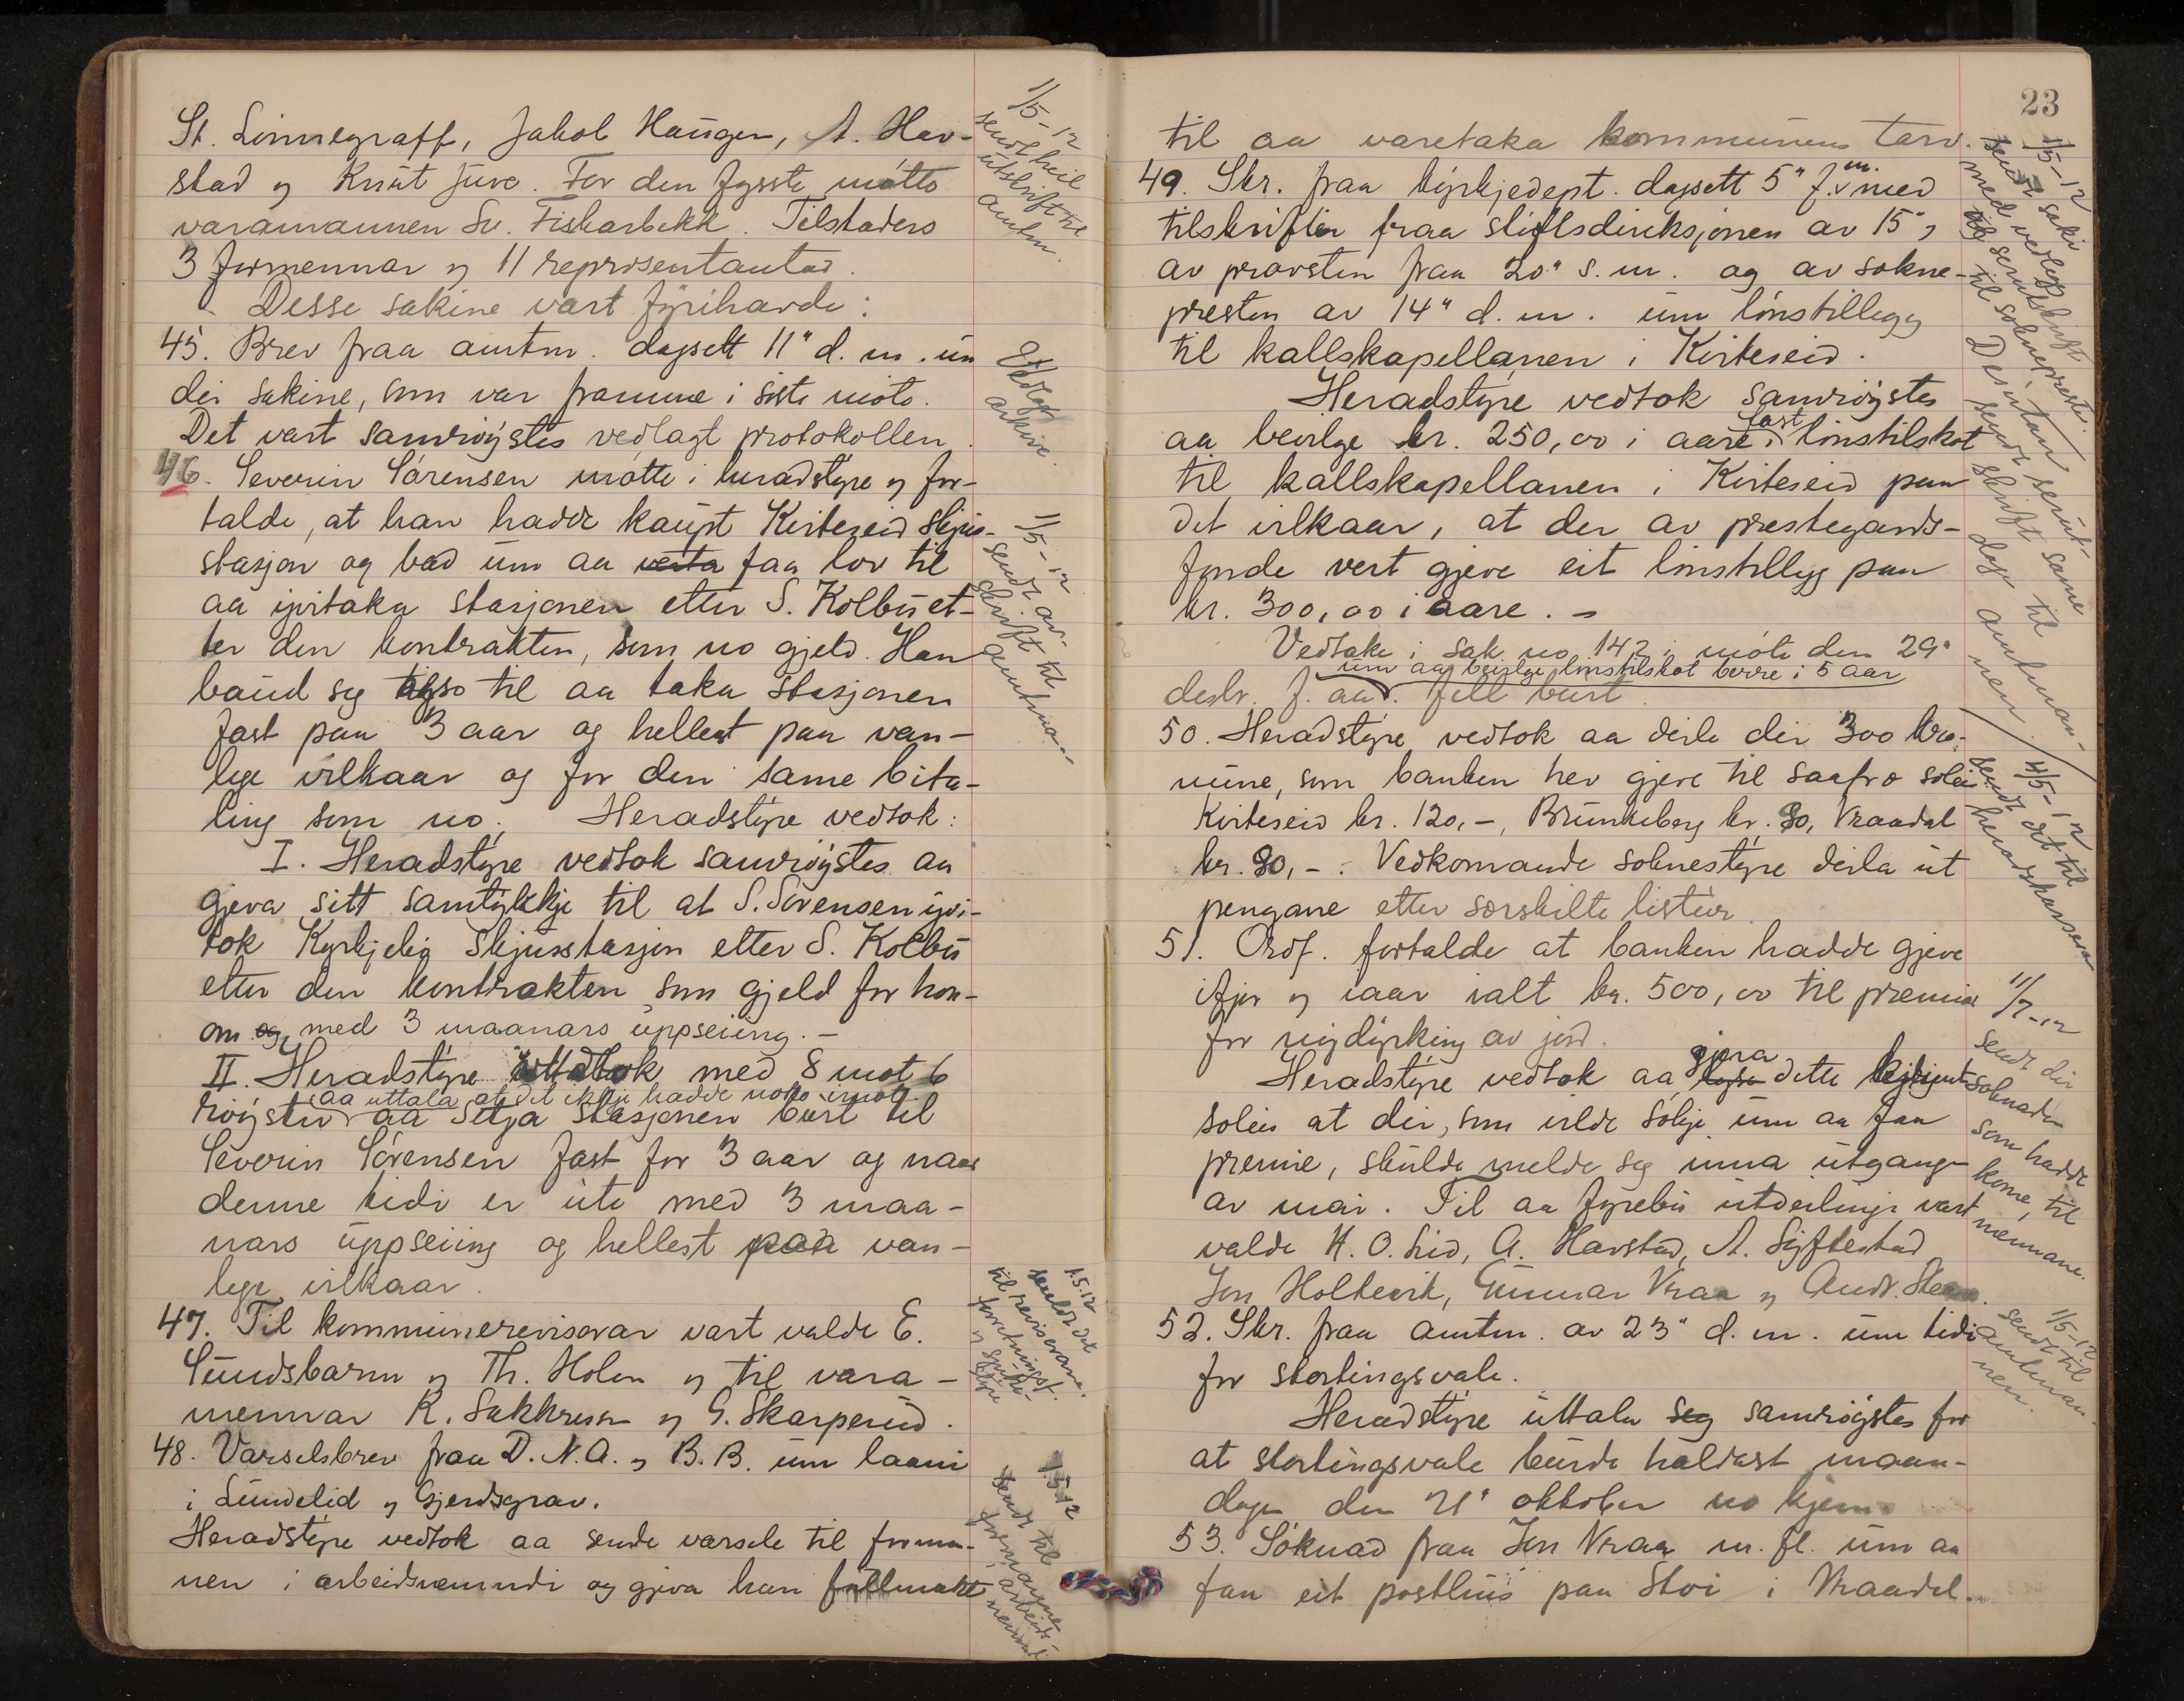 St. Linnegraff, Jakob Haugen, A. Hav-
stad og Knut Juve. For den fysste møtte
varamannen Sv. Fiskarbekk. Tilstaders
3 formennar og 11 representantar.
Desse sakine vart fyrihavde:
45. Brev fraa amtm. dagsett 11" d. m. um
dei sakine, som var framme i siste møte.
Det vart samrøystes vedlagt protokollen.
46. Severin Sørensen møtte i heradstyre og for-
talde, at han hadde kaupt Kviteseid skjus-
stasjon og bad um aa verta faa lov til
aa yvitaka stasjonen etter S. Kolbu et-
ter den kontrakten, som no gjeld. Han
baud seg til aa taka stasjonen
fast paa 3 aar og hellest paa van-
lege vilkaar og for den same bita-
ling som no. Heradstyre vedtok:
I. Heradstyre vedtok samrøystes aa
gjeva sitt samtykkje til at S. Sørensen yvi-
tok Kyrkjebø skjusstasjon etter S. Kolbu
etter den kontrakten som gjeld for hon-
om og med 3 maanars uppseiing. -
II. Heradstyre vedtok med 8 mot 6
aa uttala at det ikkje hadde noko imot
røyster aa setja stasjonen burt til
Severin Sørensen fast for 3 aar og naar
denne tidi er ute med 3 maa-
nars uppseiing og hellest paa van-
lege vilkaar.
47. Til kommunerevisorar vart valde E.
Sundsbarm og Th. Holen og til vara-
mennar K. Sakkresen og G. Skarperud.
48. Varselsbrev fraa D. N. A. og B. B. um laani
i Lundelid og Gjerdsgrav.
Heradstyre vedtok aa sende varsele til forman-
nen i arbeidsnemndi og gjeva han fullmakt
1/5-12
sendt heil
utskrift til
amtm.
Vedlagt
arkive.
11/5-12
sendt av-
skrift til
amtman
1.5.12
sendt det
til revisorane,
forretningsf.
og spari-
styre
1.5.12
sendt til
formannen
i arbeids-
nemnd
23
til aa varetaka kommunens tarv.
49. Skr. fraa kyrkjedept. dagsett 5" f. m. med
tilskrifter fraa stiftsdireksjonen av 15",
av prosten fraa 20" s. m. og av sokne-
presten av 14" d. m. um lønstillegg
til kallskapellanen i Kviteseid.
Heradstyre vedtok samrøystes
aa bevilge kr. 250,00 i aare i fast lønstilskot
til kallskapellanen i Kviteseid paa
det vilkaar, at der av prestegards-
fonde vert gjeve eit lønstillegg paa
kr. 300,00 i aare. -
Vedtake i sak no 142 i møte den 29"
um aa bevilge lønstilskot berre i 5 aar
desbr. f. aar fell burt.
50. Heradstyre vedtok aa deile dei 300 kro-
nune, som banken hev gjeve til saafrø soleis
Kviteseid kr. 120,-, Brunkeberg kr. 90, Vraadal
kr. 90,-. Vedkomande soknestyre deila ut
pengane etter sorskilte listur.
51. Ordf. fortalde at banken hadde gjeve
ifjor og iaar ialt kr. 500,00 til premiar
for nydyrking av jord.
Heradstyre vedtok aa lysa gjera dette kjent
soleis at dei, som vilde søkje um aa faa
premie, skulde melde seg inna utgangen
av mai. Til aa fyrebu utdeilingi vart
valde H. O. Lid, A. Havstad, A. Syftestad
Jon Holtevik, Gunnar Vraa og Andr. Steen.
52. Skr. fraa amtm. av 23" d. m. um tidi
for stortingsvale.
Heradstyre uttala seg samrøystes for
at stortingsvale burde haldast maan-
dagen den 21" oktober no kjem.
53. Søknad fraa Jon Vraa m. fl. um aa
faa eit posthus paa Stoi i Vraadal.
1/5-12
sendt saki
med vedlegg
og serutskrift
til soknepresten.
Desutan serut-
skrift same
dag til
amtman-
nen
4/5-12
sendt det til
heradskassera
11/7-12
sendt dei
søknader
som hadde
kome, til
nemnarne.
1/5-12
sendt til
amtman-
nen.